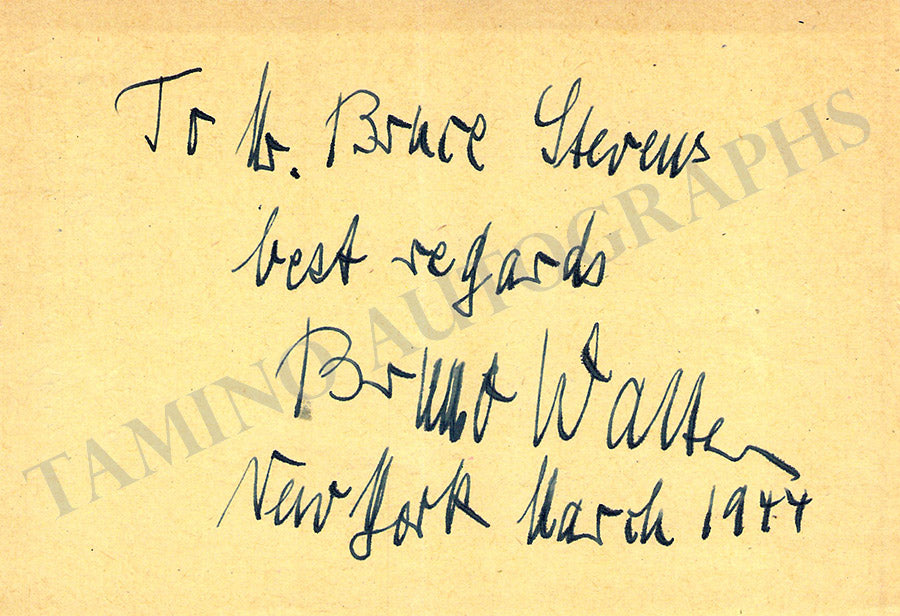 To Mr. Bruce Stevens
best regards
Bruno Walter
New York March 1944
TAMINO AUTOGRAPHS